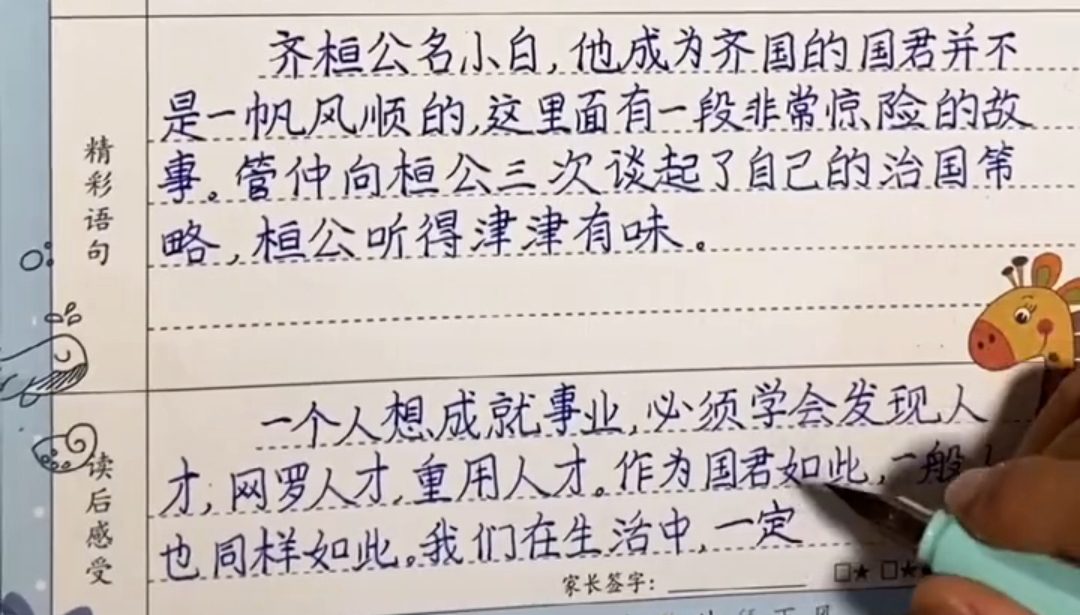 精彩语句
齐桓公名小白,他成为齐国的国君并不
是一帆风顺的,这里面有一段非常惊险的故
事。管仲向桓公三次谈起了自己的治国策
略,桓公听得津津有味。
读后感受
一个人想成就事业,必须学会发现人
才,网罗人才,重用人才。作为国君如此,一般
也同样如此。我们在生活中,一定
家长签字: